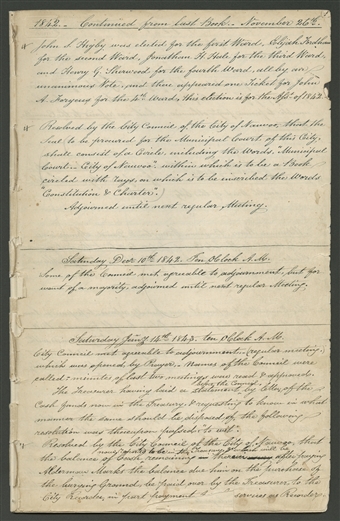 1842. Continued from last Book. November 26th
John S. Higby was elected for the first Ward, Elijah
for the second Ward, Jonathan H. Hale for the third Ward,
and Henry G. Sherwood for the fourth Ward, all by an
unanimous Vote. and there appeared one Ticket for John
A. Forgeus for the 4th Ward, this election is for the of 1842
Resolved by the City Council of the City of Nauvoo, that the
Seal to be procured for the Municipal Court of this City,
shall consist of a Circle, including the Words, Municipal
Court City of Nauvoo. within which is to be a Book
circled with rays, on which is to be inscribed the Words
"Constitution & Charter."
Adjourned until next regular Meeting.
Saturday Decr 10th 1842. Ten O'Clock A.M.
Some of the Council met agreeable to adjournment, but for
want of a majority, adjourned until next regular Meeting.
Saturday Jany 14th 1843. ten O'Clock A.M.
City Council met agreeable to adjournment. (regular meeting.
which was opened by Prayer. Names of the Council were
called: minutes of last two meetings were read & approved.
before the Council
The Treasurer having laid a statement by letter of the
Cash funds now in the Treasury, & requesting to know in what
manner the same should be disposed of the following
resolution was thereupon passed to wit:
Resolved by the City Council of the City of Nauvoo, that
the balance of Cash remaining after paying
Alderman Marks the balance due him on the purchase of
the burying Ground, be paid over by the Treasurer to the
City Recorder, in part payment services as Recorder